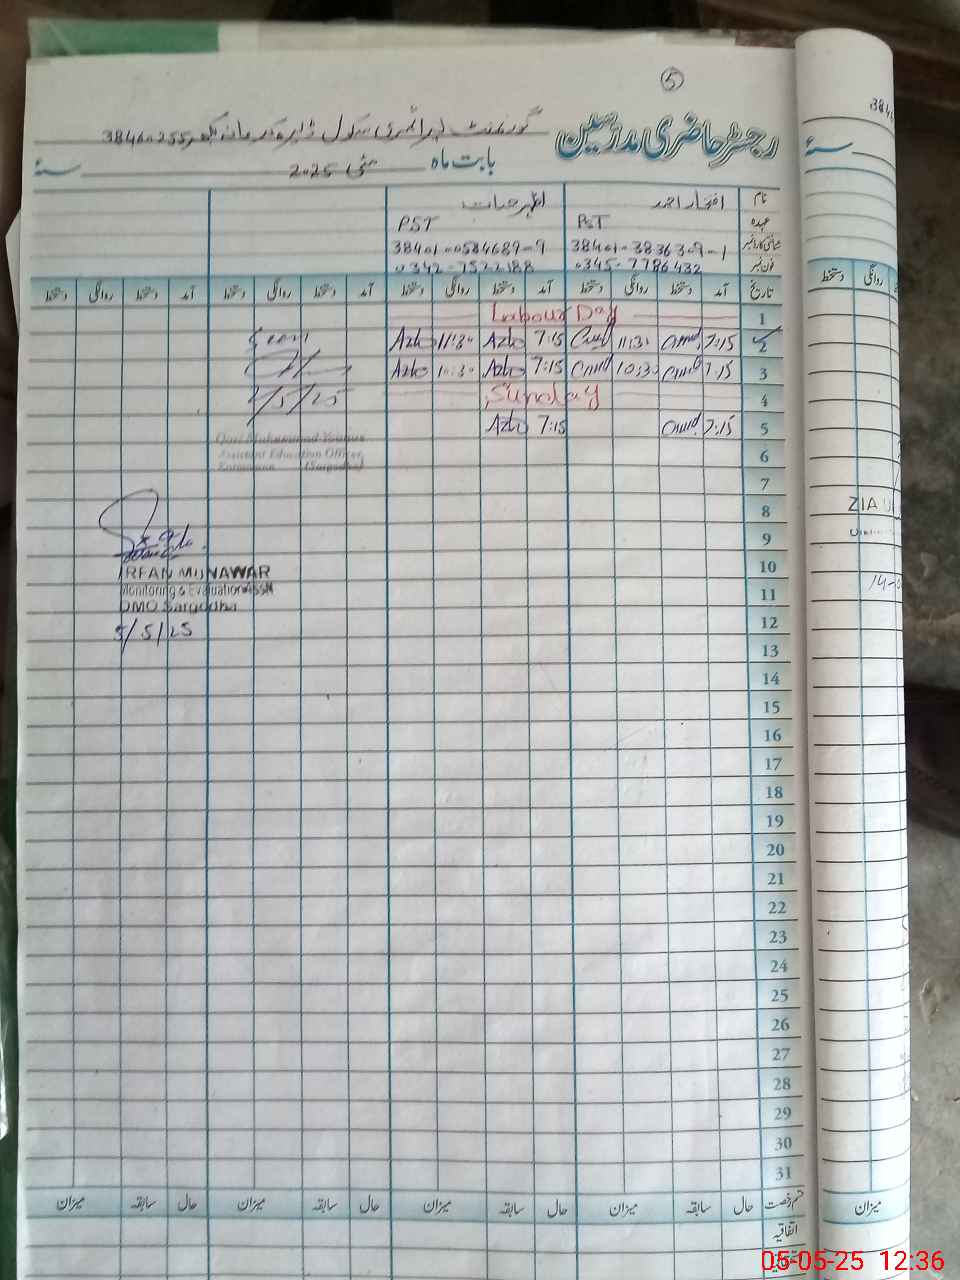 5
رجسٹر حاضری مدرسین
گورنمنٹ پرائمری سکول ڈیرہ 38460255
بابت ماہ مئی 2025 سنہ
نام افتخار احمد اظہر حیات
عہدہ PST PST
شناختی کارڈ نمبر 38401-3836309-1 38401-0584689-9
فون نمبر 0345-7786432 0342-7522188
تاریخ آمد دستخط روانگی دستخط آمد دستخط روانگی دستخط آمد دستخط روانگی دستخط آمد دستخط روانگی دستخط
1 Labour Day
2 7:15 11:30 7:15 Azhr 11:30 Azhr
3 7:15 10:30 7:15 Azhr 10:30 Azhr
4 Sunday
5 7:15 7:15 Azhr
6
7
8
9
10
11
12
13
14
15
16
17
18
19
20
21
22
23
24
25
26
27
28
29
30
31
2/5/25
Qari Muhammad Younus
Assistant Education Officer
(Sargodha)
IRFAN MUNAWAR
Monitoring & Evaluation Assn
DMO Sargodha
5/5/25
قسم رخصت حال سابقہ میزان حال سابقہ میزان حال سابقہ میزان حال سابقہ میزان
اتفاقیہ
384
سنہ
روانگی دستخط
ZIA U
14-0
میزان
05-05-25 12:36